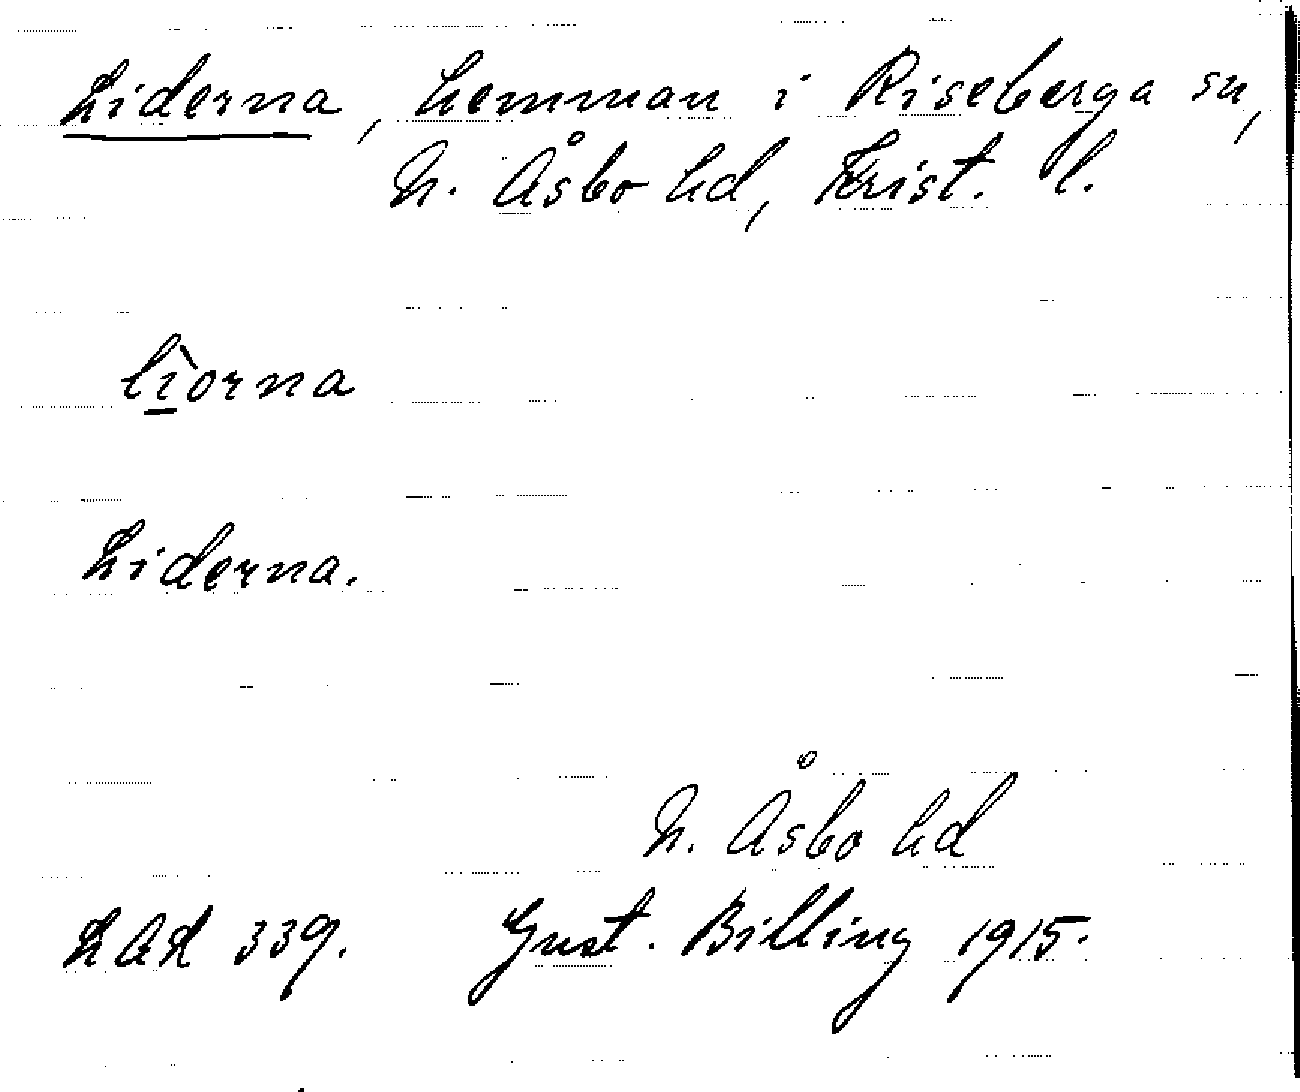 Liderna, hemman i Riseberga sn,
N. Åsbo hd, Krist. l.
lìorna
Liderna.
N. Åsbo hd
LAL 339. Gust. Billing 1915.